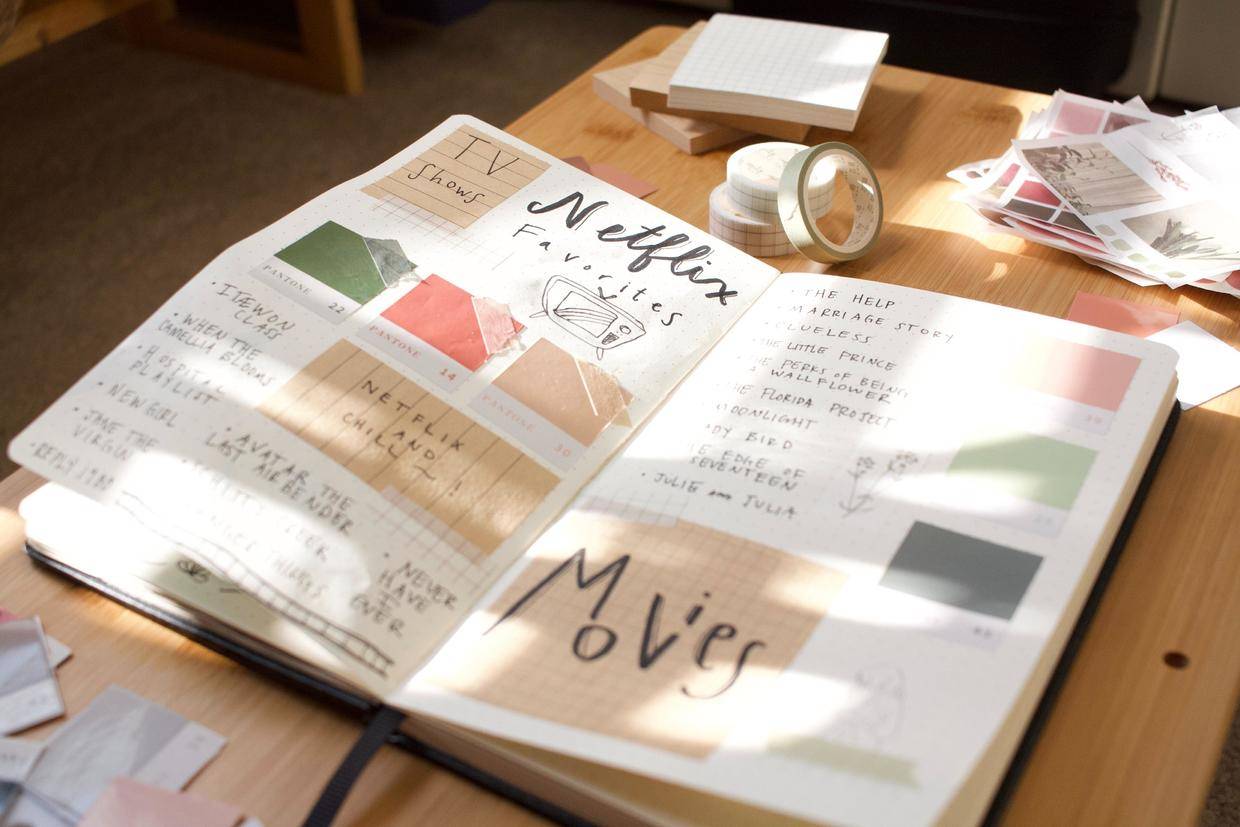 TV
Shows
Netflix
Favorites
PANTONE
22
PANTONE
14
PANTONE
30
• ITAEWON
CLASS
• WHEN THE
CAMELLIA BLOOMS
• HOSPITAL
PLAYLIST
• NEW GIRL
• JANE THE
VIRGIN
• REPLY
NETFLIX
AND
CHILL !
• AVATAR THE
LAST AIRBENDER
THINGS
• NEVER
HAVE
I
EVER
• THE HELP
• MARRIAGE STORY
• CLUELESS
THE LITTLE PRINCE
THE PERKS OF BEING
A WALLFLOWER
THE FLORIDA PROJECT
MOONLIGHT
DY BIRD
EDGE OF
SEVENTEEN
• JULIE AND JULIA
Movies